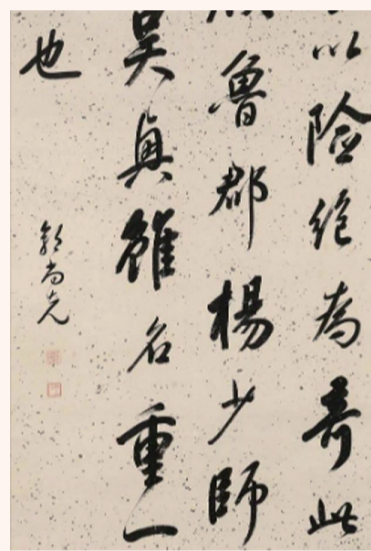 以險絕為奇此
魯郡楊少師
吳興雖名重一
也
郭尚先